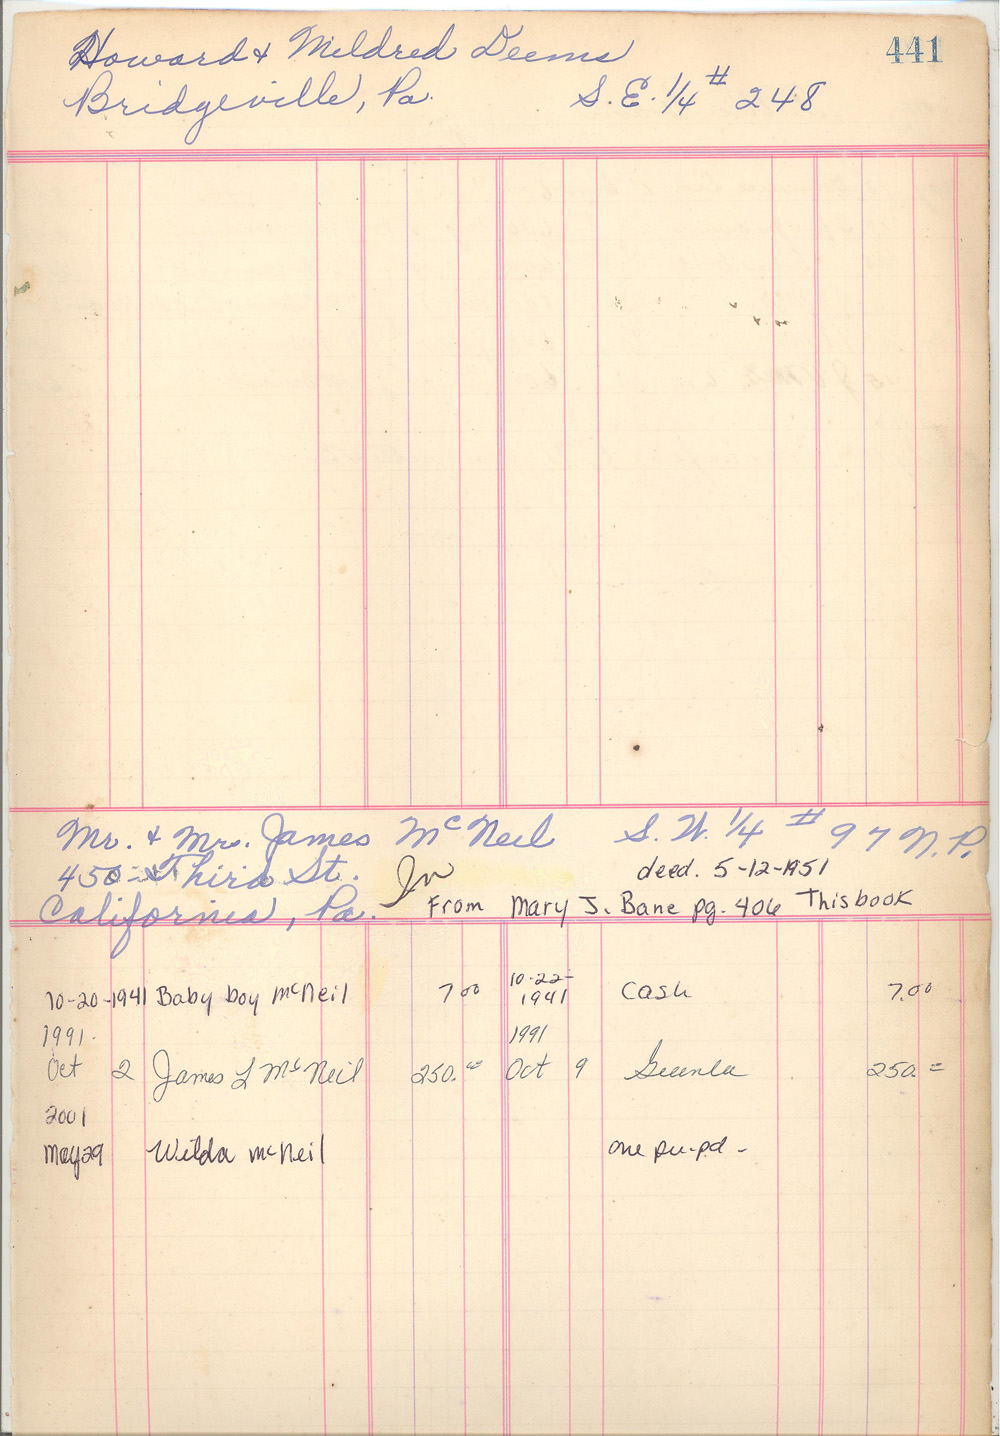 441
Howard & Mildred Deems
Bridgeville, Pa. S.E. 1/4 # 248
Mr. & Mrs. James McNeil S.W. 1/4 # 97 N.P.
450 - Third St. Jr deed. 5-12-1951
California, Pa. From Mary J. Bane pg. 406 This book
10-20-1941 Baby boy McNeil 7.00 10-22-1941 Cash 7.00
1991. 1991
Oct 2 James L McNeil 250.= Oct 9 250.=
2001
May 29 Wilda McNeil one pre-pd -